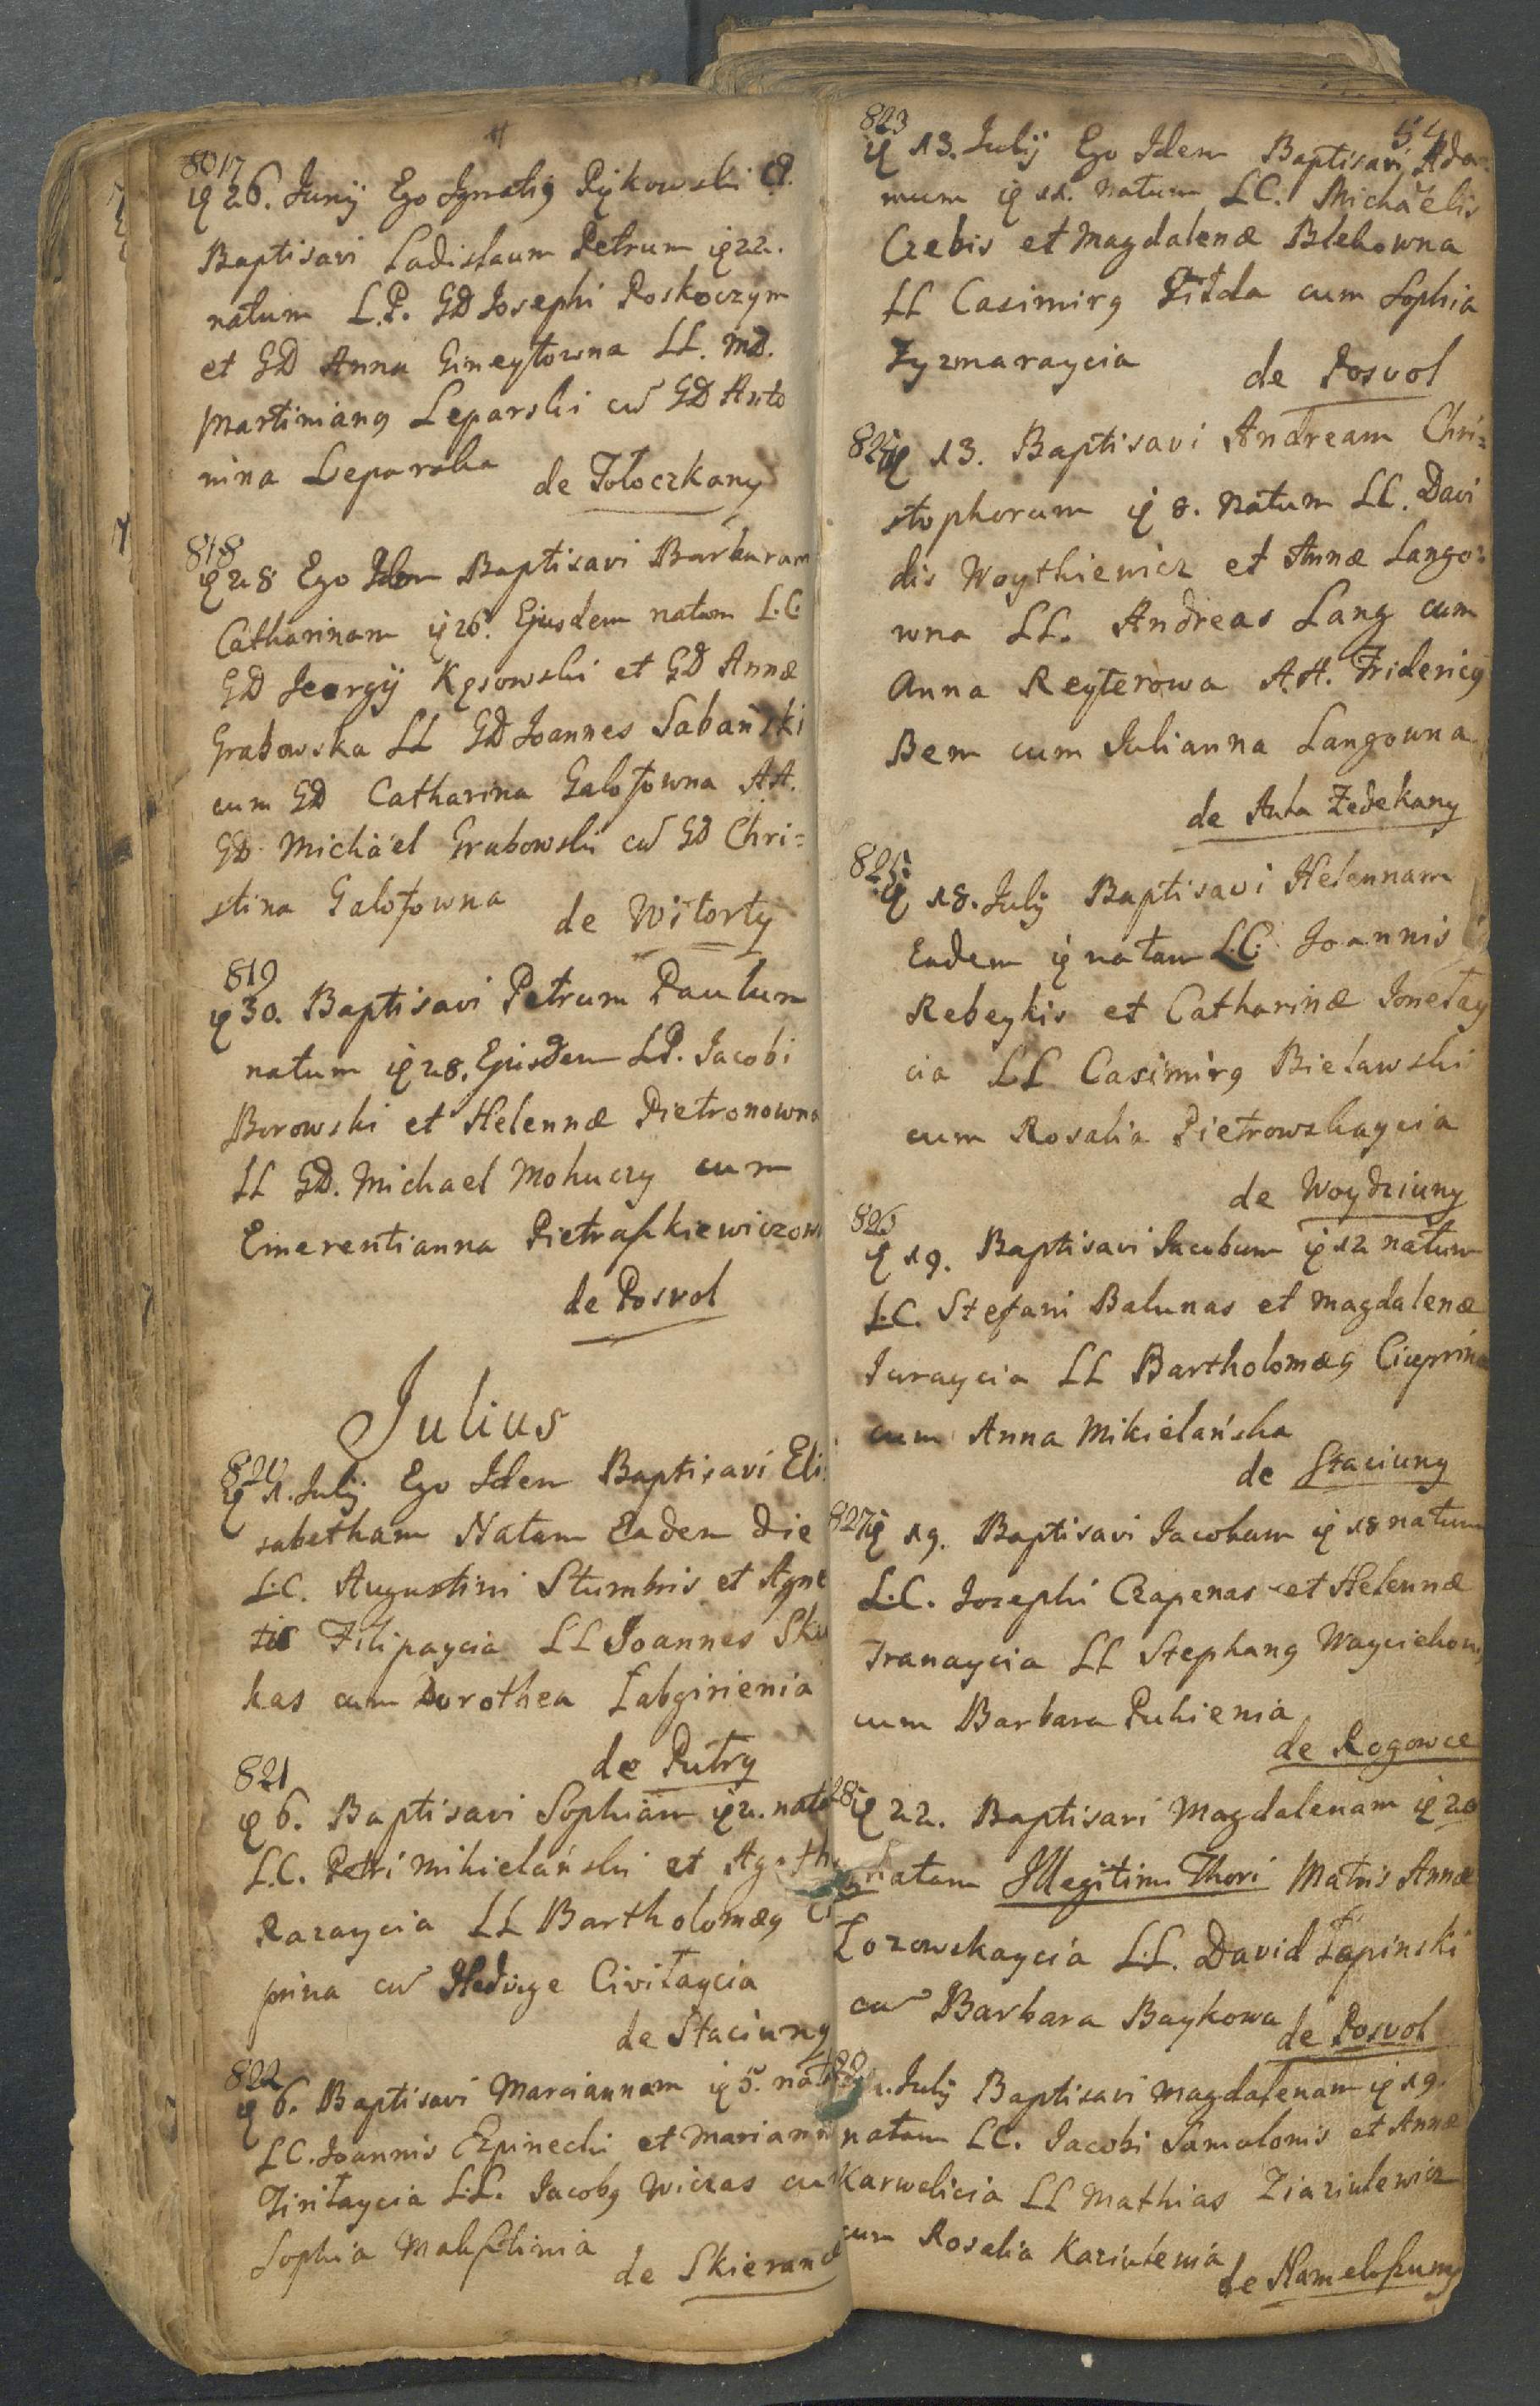 8017
26. Junij Ego Ignatig Rykowski
Baptisavi Ladislaum Petrum 22.
natum L.P. GD Josephi Roskoczym
et GD Anna Gineytowna LL. MD.
Martinian9 Leparski cu GD Anto
nina Leparska
de Toloczkany
818
28 Ego Idem Baptisavi Barbaram
Catharinam 26. Ejusdem natam L.C.
GD Georgij Kęsowski et GD Annæ
Grabowska LL GD Joannes Sabański
cum GD Catharina Galofowna AA.
GD Michäel Grabowski cu GD Chri=
stina Galofowna
de Witorty
819
30. Baptisavi Petrum Paulum
natum 28. Ejusdem LP. Jacobi
Borowski et Helennæ Pietronowna
LL GD. Michael Mohuczy cum
Emerentianna Pietraszkiewiczow
de Posvol
Julius
820
1. Julij Ego Idem Baptisavi Eli
sabetham Natam Eadem die
L.C. Augustini Stumbris et Agne
tis Filipaycia LL Joannes Sku
kas cum Dorothea Łabgirienia
de Putry
821
6. Baptisavi Sophiam 2. nata
L.C. Petri Mikielański et Agatha
Razaycia LL Bartholomæ9 Ci
prina cu Hedvige Civitaycia
de Staciuny
822
6. Baptisavi Mariannam 5. nat
LC. Joannis Czpinecki et Mariann
Tiritaycia L.L. Jacob9 Wiczas cu
Sophia
de Skieran
54
823
13. Julij Ego Idem Baptisavi Ada=
mum 12. natum LC. Michäelis
Czebis et Magdalenæ Blekowna
LL Casimir9 Żiłda cum Sophia
Zyzmaraycia
de Posvol
824
13. Baptisavi Andream Chri=
stophorum 8. natum LC. Davi
dis Woythiewicz et Annæ Lango=
wna LL. Andreas Lang cum
Anna Reyterowa A.A. Frideric9
Bem cum Julianna Langowna
de Auta Zedekany
825
18. Julij Baptisavi Helennam
Eadem natam L.C. Joannis
Rebeykis et Catharinæ Jonetay
cia LL Casimir9 Bielawski
cum Rosalia Pietrowskaycia
de Woydziuny
826
19. Baptisavi Jacobum 12 natum
L.C. Stefani Balunas et Magdalenæ
Juraycia LL Bartholomæ9 Ciuprina
cum Anna Mikielańska
de Staciuny
827
19. Baptisavi Jacobum 18 natum
L.C. Josephi Czapenas et Helennæ
Iranaycia LL Stephan9 Wayciekow
cum Barbara Puhienia
de Rogowce
28
22. Baptisavi Magdalenam 20
natam Illegitimi Thori Matris Annæ
Łozowskaycia L.L. David Łapinski
cu Barbara Baykowa
de Posvol
Julij Baptisavi Magdalenam 19.
natam LC. Jacobi Samulonis et Annæ
Karwelicia LL Mathias Ziaziulewicz
cum Rosalia Kaziulenia
de Namelkpuny